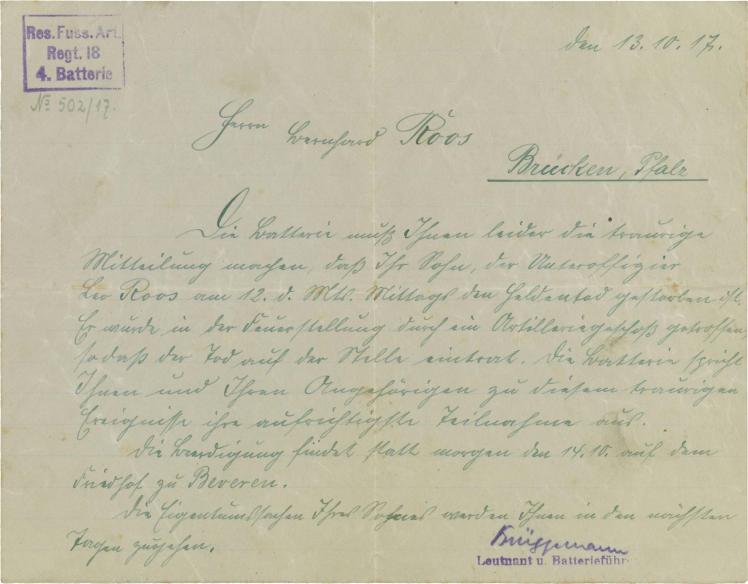 Res. Fuss. Art.
Regt. 18
4. Batterie
№ 502/17.
den 13.10.17.
Herrn Bernhard Roos
Brücken, Pfalz
Die Batterie muß Ihnen leider die traurige
Mitteilung machen, daß Ihr Sohn, der Unteroffizier
Leo Roos am 12. d. Mts. Mittags den Heldentod gestorben ist.
Er wurde in der Feuerstellung durch ein Artilleriegeschoß getroffen,
sodaß der Tod auf der Stelle eintrat. Die Batterie spricht
Ihnen und Ihren Angehörigen zu diesem traurigen
Ereignisse ihre aufrichtigste Teilnahme aus.
Die Beerdigung findet statt morgen den 14.10. auf dem
Friedhof zu Beveren.
Die Eigentumssachen Ihres Sohnes werden Ihnen in den nächsten
Tagen zugehen.
Brüggemann
Leutnant u. Batterieführ